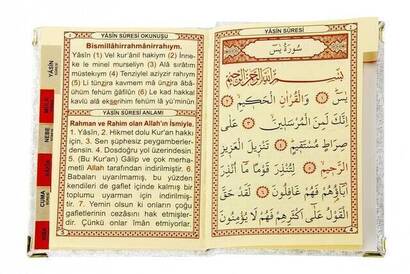 YÂSİN SÛRESİ OKUNUŞU
Bismillâhirrahmânirrahıym.
Yâsîn (1) Vel kur'ânil hakiym (2) İnne-
ke le minel murseliyn (3) Alâ sırâtım
müstekıym (4) Tenziylel azizir rahıym
(5) Li tünzira kavmem mâ ünzira âbâ-
ühüm fehüm ğâfilûn (6) Le kad hakkal
kavlü alâ ekserihim fehüm lâ yü'minûn
YÂSİN SÛRESİ ANLAMI
Rahman ve Rahim olan Allah'ın İsmiyle.
1. Yâsîn, 2. Hikmet dolu Kur'an hakkı
için, 3. Sen şüphesiz peygamberler-
densin. 4. Dosdoğru yol üzerindesin.
5. (Bu Kur'an) Gâlip ve çok merha-
metli Allah tarafından indirilmiştir. 6.
Babaları uyarılmamış, bu yüzden
kendileri de gaflet içinde kalmış bir
toplumu uyarman için indirilmiş-
tir. 7. Yemin olsun ki onların çoğu
gafletlerinin cezasını hak etmişler-
dir. Çünkü onlar îman etmiyorlar.
YÂSİN
NEBE
CUMA
YÂSİN SÛRESİ
سُورَةُ يٰسٓ
بِسْمِ اللّٰهِ الرَّحْمٰنِ الرَّحِيمِ
يٰسٓ ﴿١﴾ وَالْقُرْاٰنِ الْحَكِيمِ ﴿٢﴾
اِنَّكَ لَمِنَ الْمُرْسَلِينَ ﴿٣﴾ عَلٰى
صِرَاطٍ مُسْتَقِيمٍ ﴿٤﴾ تَنْزِيلَ الْعَزِيزِ
الرَّحِيمِ ﴿٥﴾ لِتُنْذِرَ قَوْمًا مَٓا اُنْذِرَ
اٰبَٓاؤُ۬هُمْ فَهُمْ غَافِلُونَ ﴿٦﴾ لَقَدْ حَقَّ
الْقَوْلُ عَلٰٓى اَكْثَرِهِمْ فَهُمْ لَا يُؤْمِنُونَ